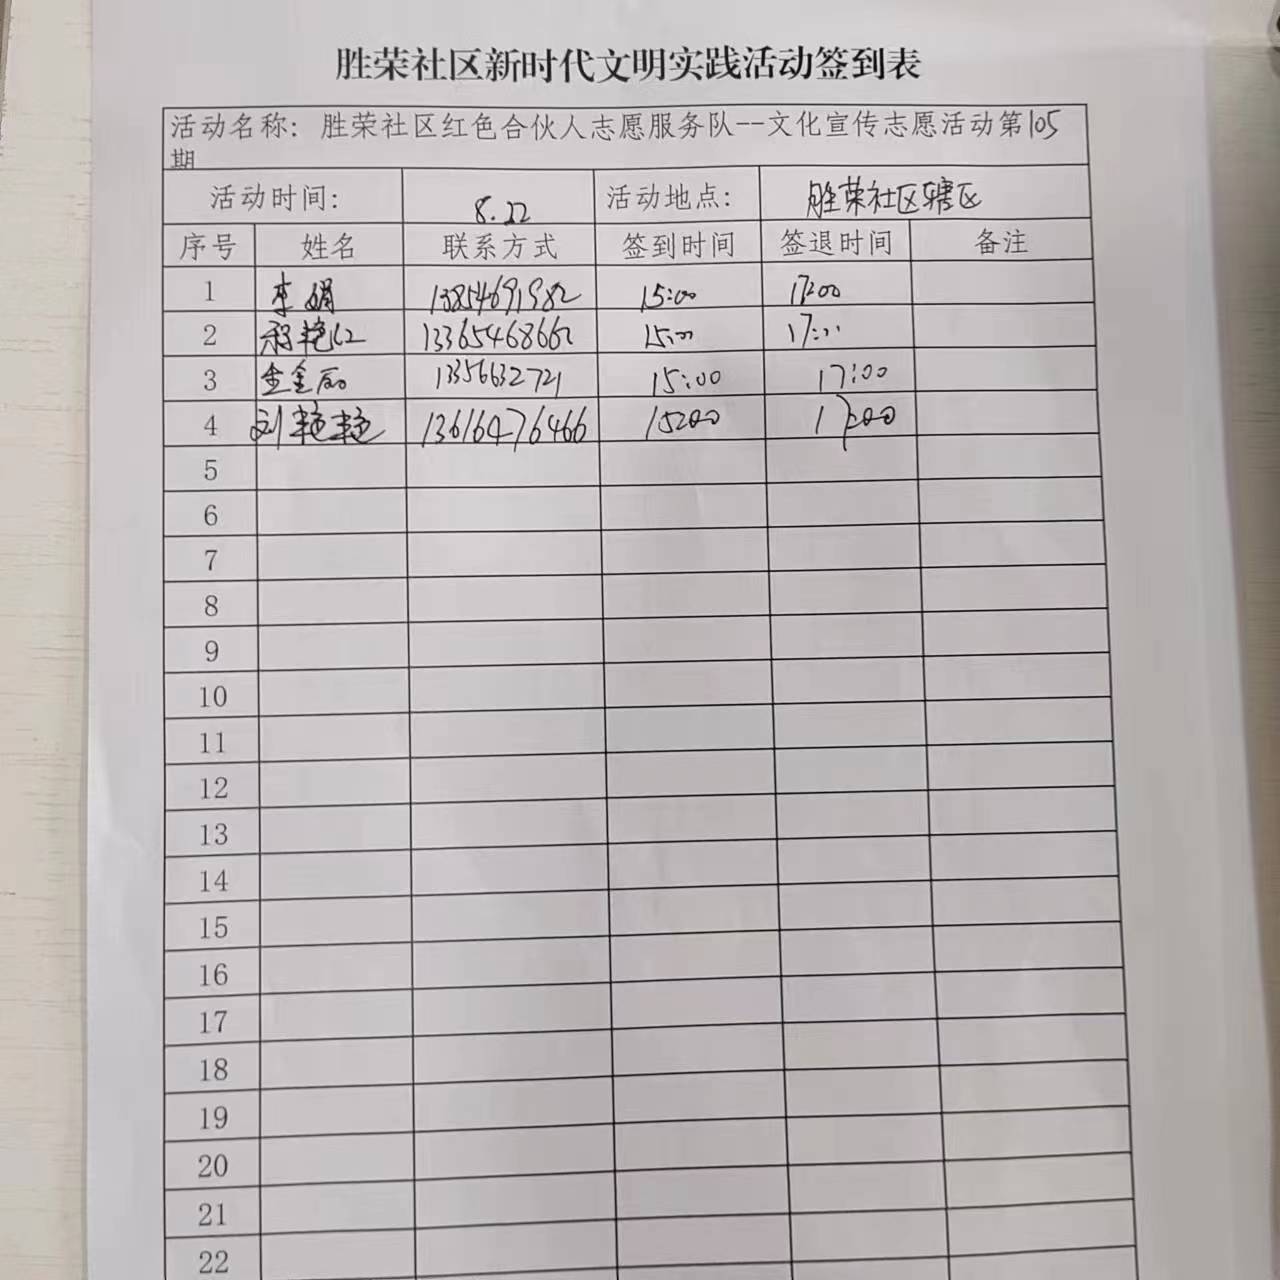 胜荣社区新时代文明实践活动签到表
活动名称：胜荣社区红色合伙人志愿服务队--文化宣传志愿活动第105
期
活动时间： 8.22 活动地点： 胜荣社区辖区
序号 姓名 联系方式 签到时间 签退时间 备注
1 李娟 13854691982 15:00 17:00
2 13365468662 15:00 17:00
3 13356632721 15:00 17:00
4 刘艳艳 13616476466 15:00 17:00
5
6
7
8
9
10
11
12
13
14
15
16
17
18
19
20
21
22